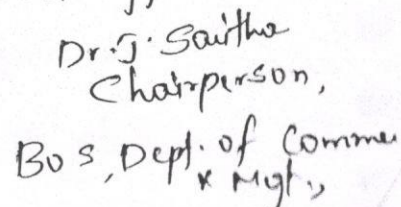 Dr. J. Savitha
Chairperson,
BOS, Dept. of Comme
& Mgt.,